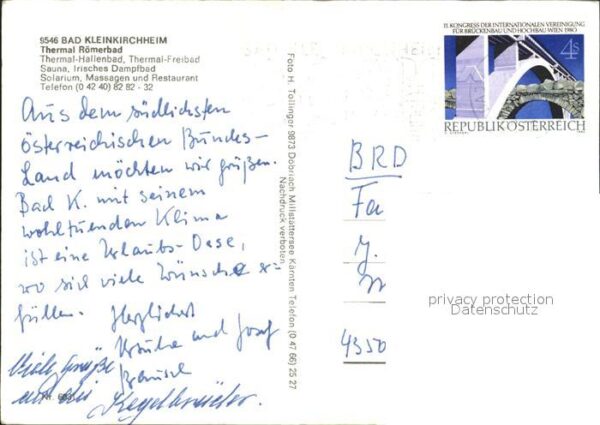 9546 BAD KLEINKIRCHHEIM
Thermal Römerbad
Thermal-Hallenbad, Thermal-Freibad
Sauna, Irisches Dampfbad
Solarium, Massagen und Restaurant
Telefon (0 42 40) 82 82 - 32
Aus dem südlichsten
österreichischen Bundes-
Land möchten wir grüßen.
Bad K. mit seinem
wohltuenden Klima
ist eine Urlaubs-Oase,
wo sich viele Wünsche er-
füllen.
Herzlichst
und Josef
Viele Grüße
an die Kegelbrüder.
Foto H. Tollinger 9873 Döbriach Millstättersee Kärnten Telefon (0 47 66) 25 27
Nachdruck verboten
11. KONGRESS DER INTERNATIONALEN VEREINIGUNG
FÜR BRÜCKENBAU UND HOCHBAU WIEN 1980
4 S
REPUBLIK ÖSTERREICH
BRD
Fa
4350
privacy protection
Datenschutz